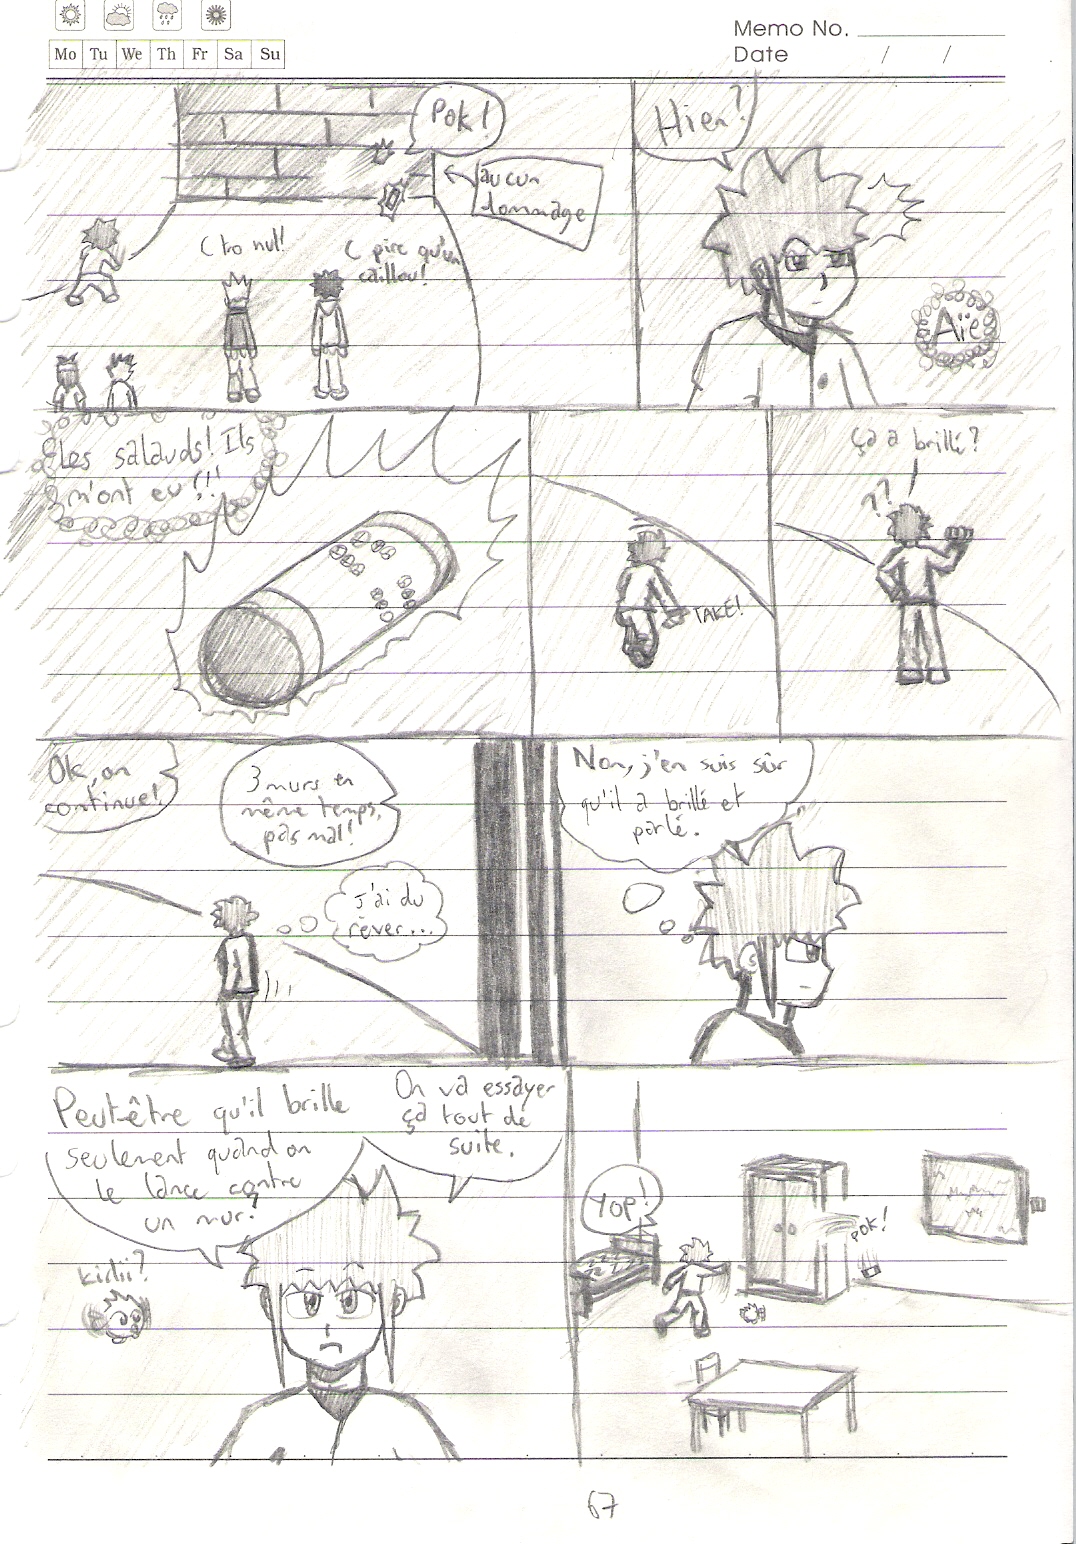 Mo Tu We Th Fr Sa Su
Memo No.
Date / /
Pok!
aucun
dommage
C tro nul!
C pire qu'un
caillou!
Hien?
Aïe
Les salauds! Ils
m'ont eu!!!
TAKE!
ça a brillé?
??
Ok, on
continue!
3 murs en
même temps,
pas mal!
J'ai du
rêver...
Non, j'en suis sûr
qu'il a brillé et
parlé.
Peut-être qu'il brille
seulement quand on
le lance contre
un mur?
On va essayer
ça tout de
suite.
kidii?
Yop!
POK!
67